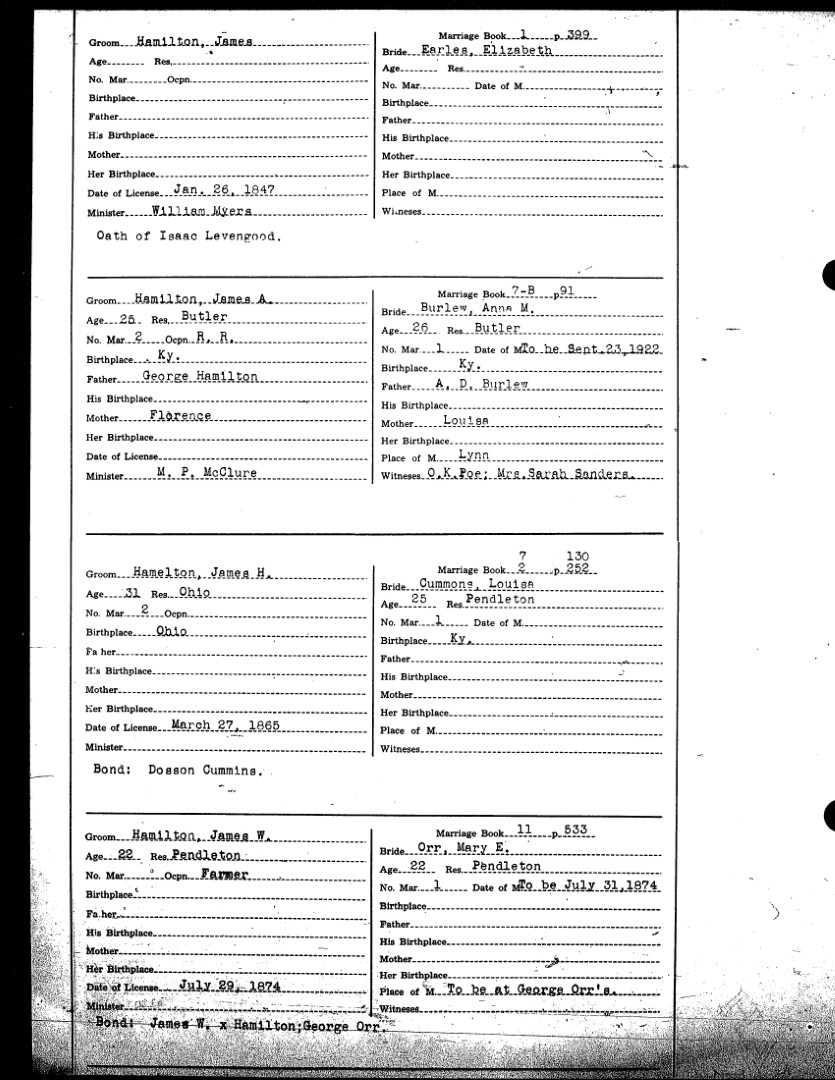 Groom Hamilton, James
Age Res.
No. Mar. Ocpn.
Birthplace
Father
His Birthplace
Mother
Her Birthplace
Date of License Jan. 26, 1847
Minister William Myers
Marriage Book 1 p. 399
Bride Earles, Elizabeth
Age Res.
No. Mar. Date of M.
Birthplace
Father
His Birthplace
Mother
Her Birthplace
Place of M.
Witneses
Oath of Isaac Levengood.
Groom Hamilton, James A.
Age 25 Res. Butler
No. Mar. 2 Ocpn. R. R.
Birthplace Ky.
Father George Hamilton
His Birthplace
Mother Florence
Her Birthplace
Date of License
Minister M. P. McClure
Marriage Book 7-B p 91
Bride Burlew, Anna M.
Age 26 Res. Butler
No. Mar. 1 Date of M To be Sept.23,1922
Birthplace Ky.
Father A. D. Burlew
His Birthplace
Mother Louisa
Her Birthplace
Place of M. Lynn
Witneses O.K.Poe; Mrs.Sarah Sanders.
Groom Hamelton, James H.
Age 31 Res. Ohio
No. Mar. 2 Ocpn.
Birthplace Ohio
Fa her
His Birthplace
Mother
Her Birthplace
Date of License March 27, 1865
Minister
7 130
Marriage Book 2 p. 252
Bride Cummons, Louisa
Age 25 Res. Pendleton
No. Mar. 1 Date of M.
Birthplace Ky.
Father
His Birthplace
Mother
Her Birthplace
Place of M.
Witneses
Bond: Dosson Cummins.
Groom Hamilton, James W.
Age 22 Res. Pendleton
No. Mar. Ocpn. Farmer
Birthplace
Fa her
His Birthplace
Mother
Her Birthplace
Date of License July 29, 1874
Minister
Marriage Book 11 p. 533
Bride Orr, Mary E.
Age 22 Res. Pendleton
No. Mar. 1 Date of M To be July 31,1874
Birthplace
Father
His Birthplace
Mother
Her Birthplace
Place of M. To be at George Orr's.
Witneses
Bond: James W. x Hamilton;George Orr.